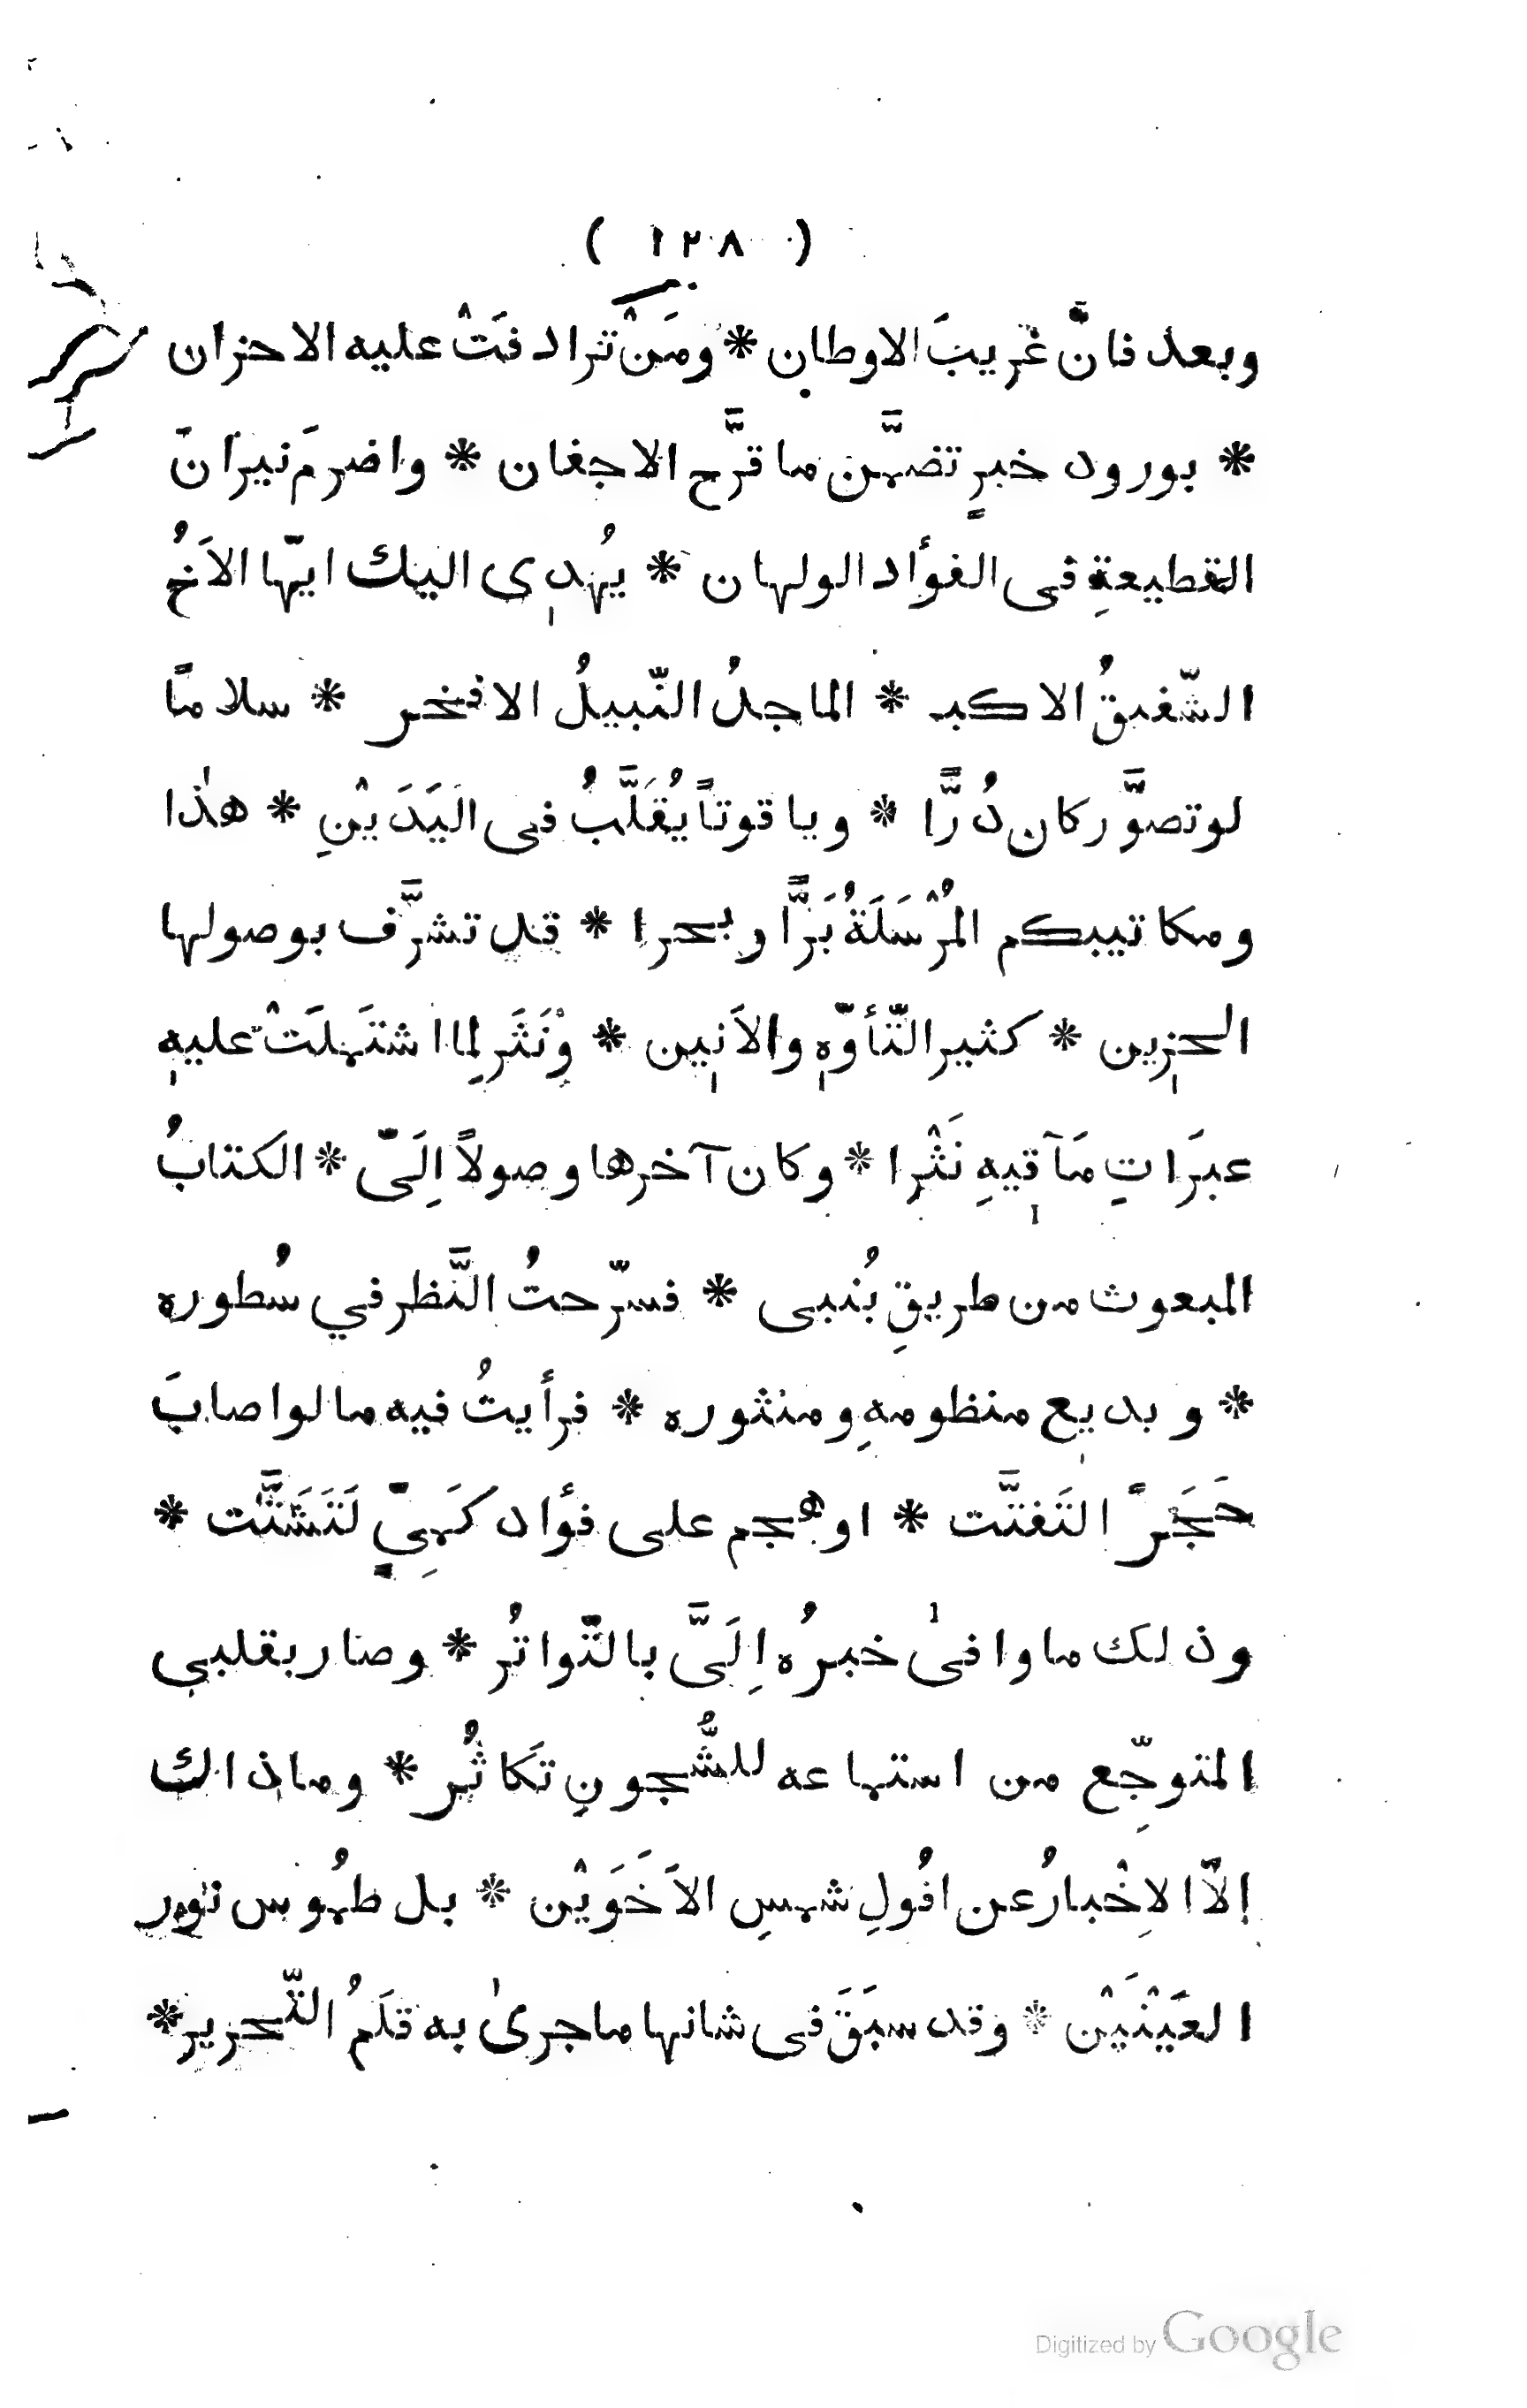 ( ١٢٨ )
وبعد فانَّ غريبَ الاوطان * ومَنْ ترادفَتْ عليه الاحزان
* بورود خبرٍ تضمَّن ما قرَّح الاجفان * واضرمَ نيرانَ
القطيعةِ فى الفؤاد الولهان * يُهدى اليك ايّها الاَخُ
الشّفيقُ الاكبر * الماجدُ النّبيلُ الافخر * سلامًا
لو تصوَّر كان دُرًّا * وياقوتاً يُقَلَّبُ فى اليَدَيْنِ * هذٰا
ومكاتيبكم المُرْسَلَةُ بَرًّا وبحرا * قد تشرَّف بوصولها
الحزين * كثير التّأوّهِ والاَنين * وَنَثَر لِما اشتَملَتْ عليهِ
عبرَاتِ مَآقيهِ نَثْرا * وكان آخرها وصولاً اِلَىّ * الكتابُ
المبعوث من طريقِ بُنبى * فسرّحتُ النَّظر في سُطوره
* وبديع منظومهِ ومنثوره * فرأيتُ فيه ما لو اصابَ
حَجَراً لتَفتَّت * او هجم على فؤاد كَمِىٍّ لَتَشَتَّت *
وذلك ما وافىٰ خبرُه اِلَىَّ بالتّواتُر * وصار بقلبي
المتوجِّع من استماعه للشُّجونِ تَكاثُر * وماذاك
اِلاّ الاِخْبارُ عن افُولِ شمسِ الاَخَوَيْن * بل طمُوس نور
العَيْنَيْن * وقد سبَقَ فى شانهما جرىٰ به قلَمُ التّحرير *
Digitized by Google